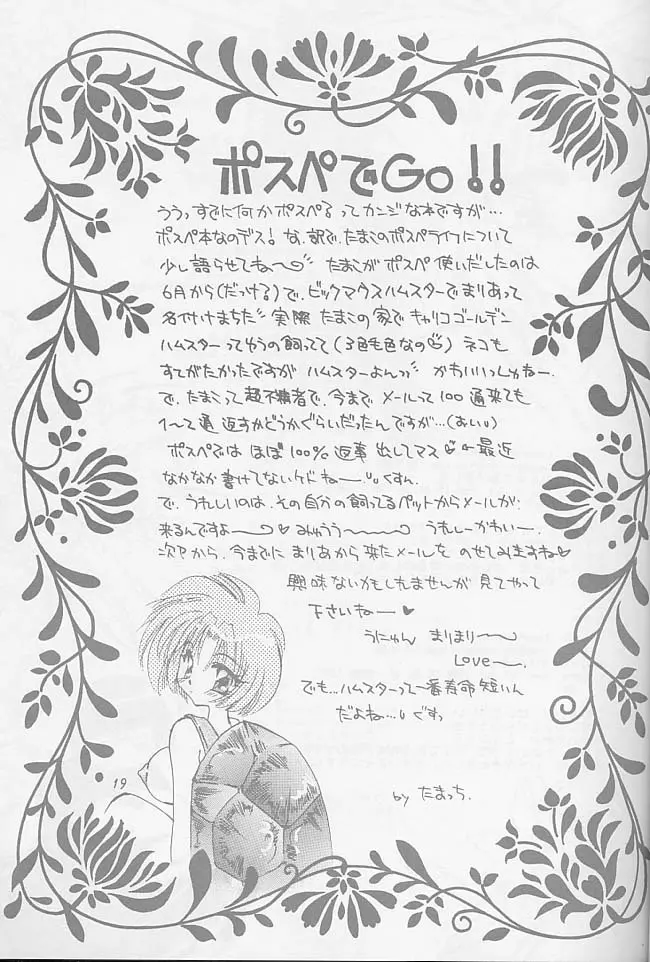 ポスペでGo!!
ううっすでに何かポスペる ってカンジな本ですが…
ポスペ本なのデス! な、部で、たまこのポスペライフについて
少し語らせてね〜 たまこが ポスペ 使いだしたのは
6月から(だっける)で、ビックマウスハムスターでまりあって
名付けまちた 実際 たまこの家でキャリコゴールデン
ハムスターってゆうの飼ってて(3色毛色なの) ネコも
すてがたかったですが ハムスターよんっ かわいいっしゅねー。
で、たまこって超不精者で、今まで メールって 100 通来ても
1〜て通 返すかどうかぐらいだったんですが…(おい)
ポスペでは ほぼ 100% 返事 出してマス ← 最近
なかなか書けてないケドねー くすん。
で、うれしいのは、その自分の飼ってるペットからメールが
来るんですよー♡ みゅうう〜 うれしーかわいー。
次Pから、今までに まりあから来たメールを のせてみますね♡
興味ないかもしれませんが 見てやって
下さいねー♥
うにゅん まりまり〜
Love〜。
でも…ハムスターって一番寿命 短いん
だよね… ぐすっ
19
by たまっち。